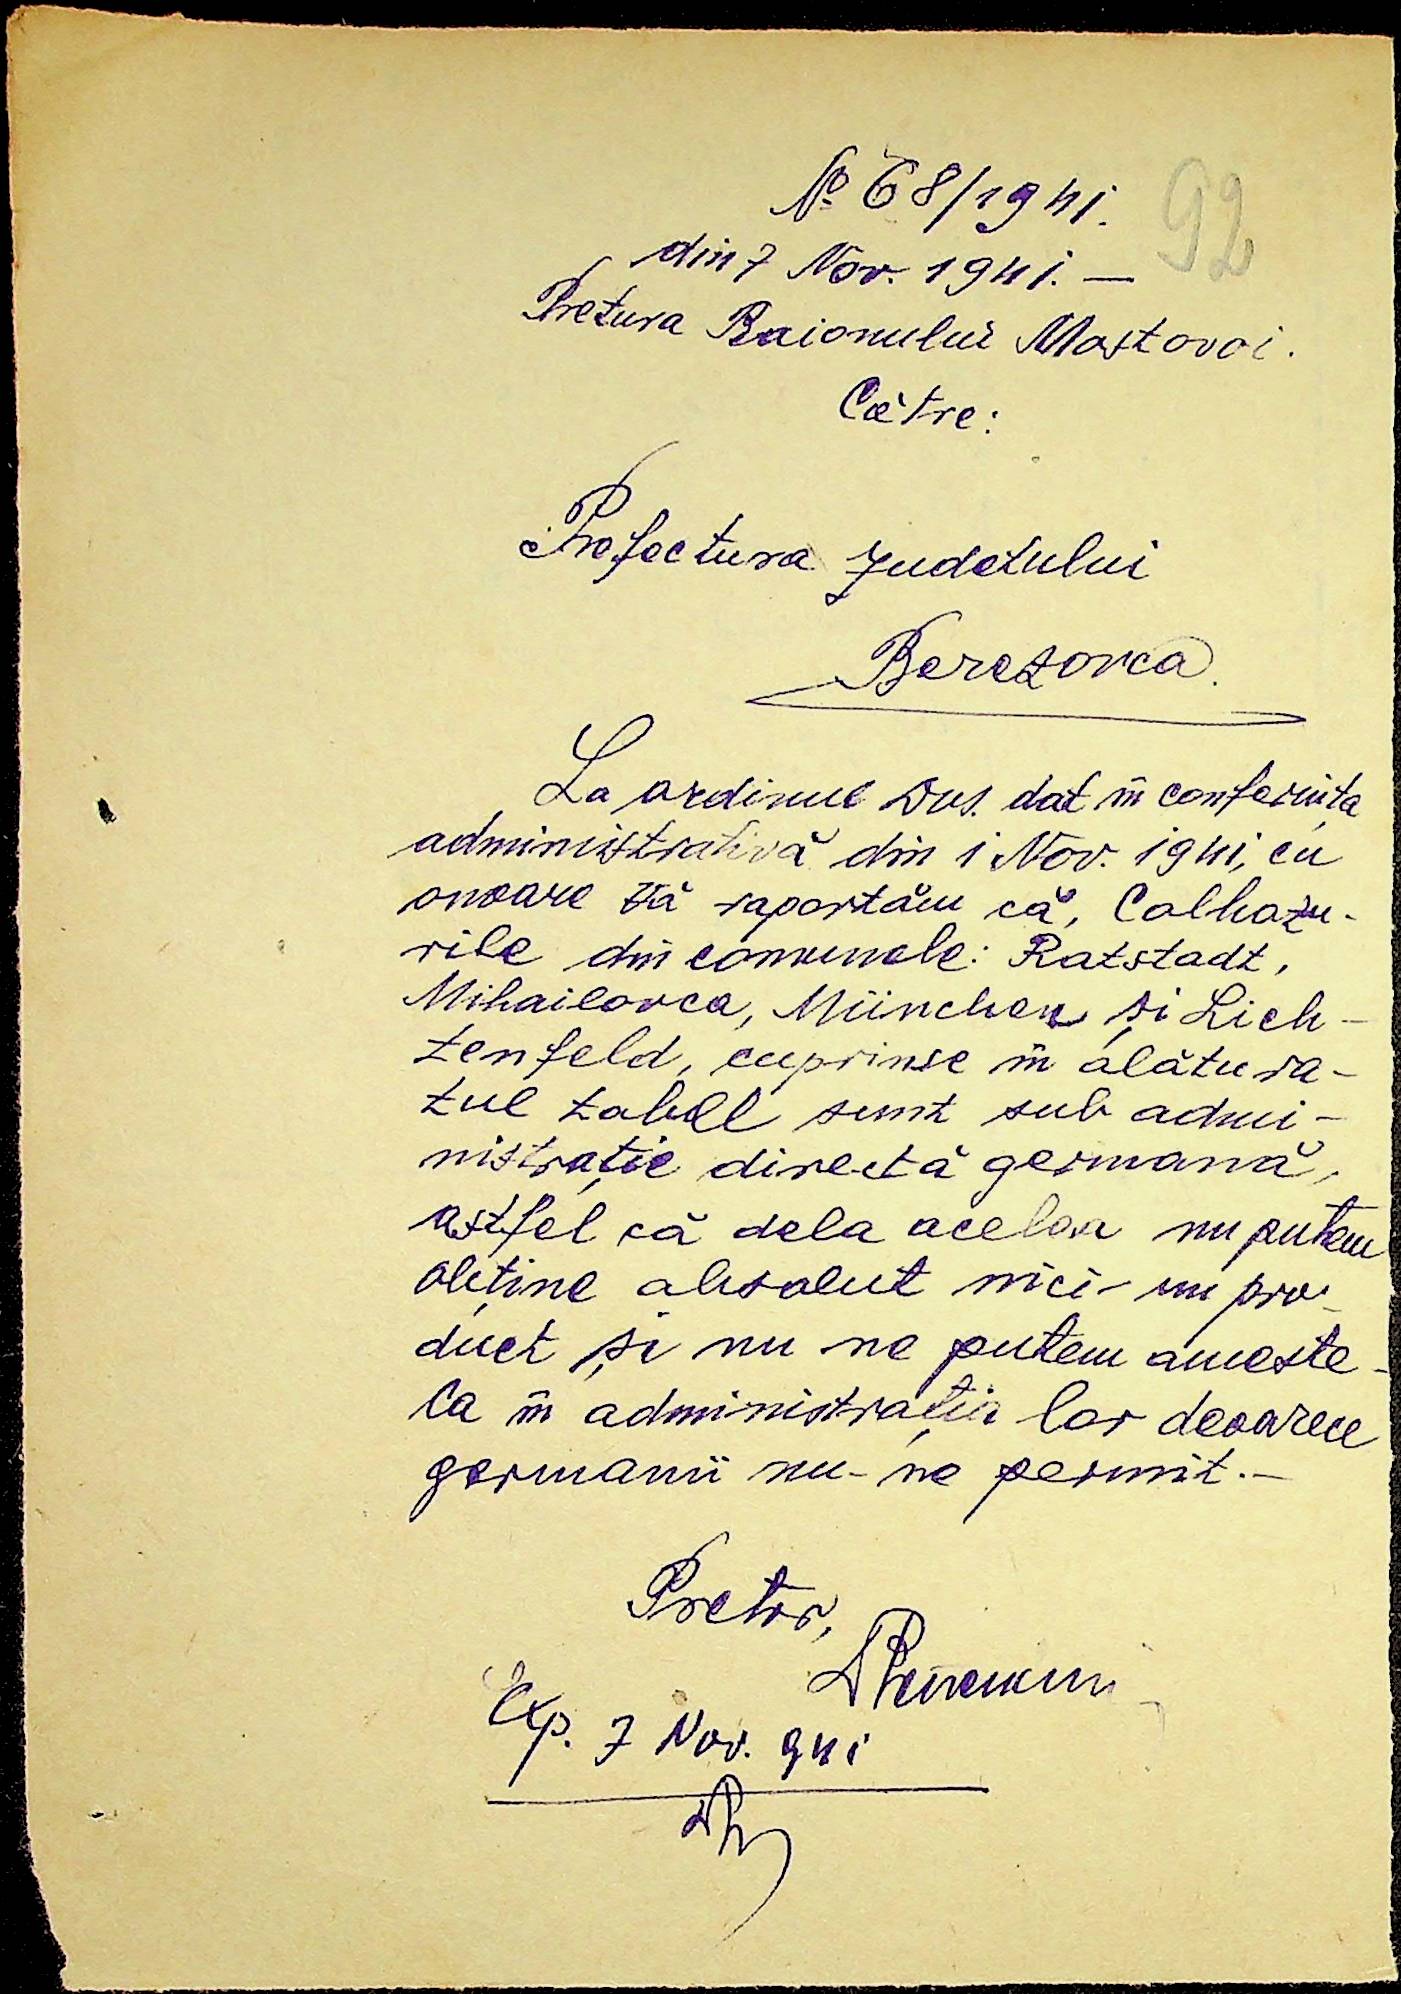 No 68/1941.
92
din 7 Nov. 1941. —
Pretura Raionului Mostovoi.
Către:
Prefectura Județului
Berezovca.
La ordinul Dvs. dat în conferința
administrativă din 1 Nov. 1941, cu
onoare Vă raportăm că, Colhozu-
rile din comunele: Ratstadt,
Mihailovca, München și Lich-
tenfeld, cuprinse în alătura-
tul tabel sunt sub admi-
nistrație directă germană,
astfel că dela acelea nu putem
obține absolut nici-un pro-
duct și nu ne putem ameste-
ca în administrația lor deoarece
germanii nu-ne permit.—
Pretor,
Exp. 7 Nov. 941